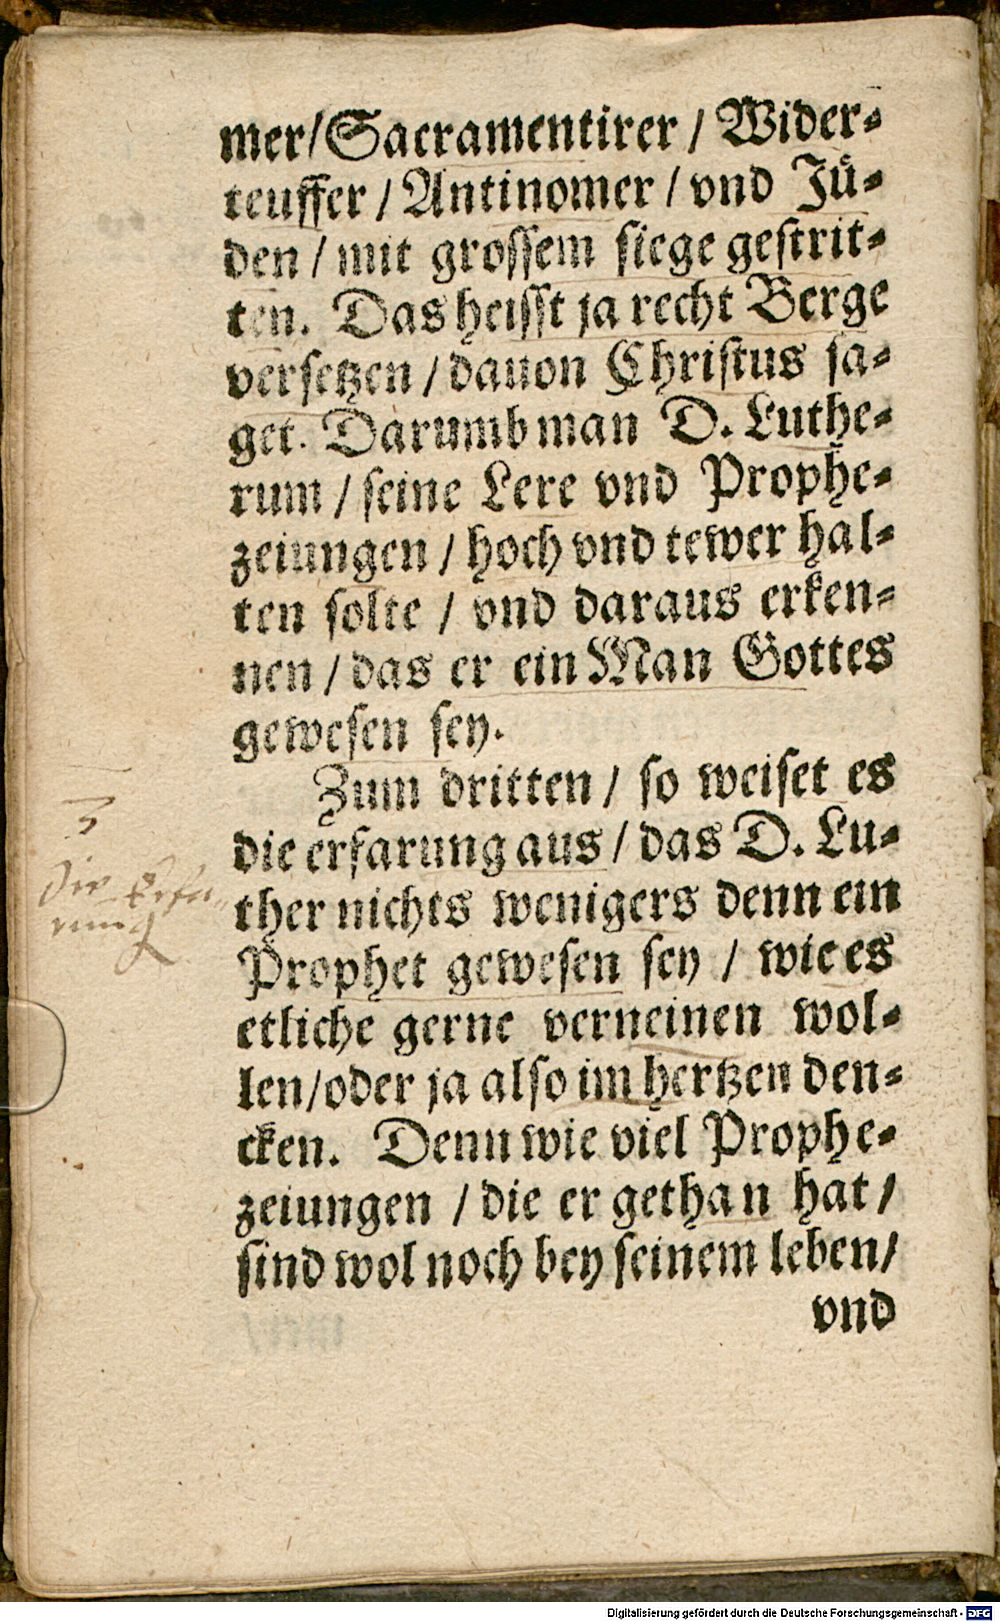 mer/Sacramentirer / Wider⸗
teuffer / Antinomer / vnd Juͤ⸗
den / mit grossem siege gestrit⸗
ten. Das heisst ja recht Berge
versetzen / dauon Christus sa⸗
get. Darumb man D. Luthe⸗
rum / seine Lere vnd Prophe⸗
zeiungen / hoch vnd tewer hal⸗
ten solte / vnd daraus erken⸗
nen / das er ein Man Gottes
gewesen sey.
Zum dritten / so weiset es
3
die erfarung aus / das D. Lu⸗
Die Erfa⸗
rung
ther nichts wenigers denn ein
Prophet gewesen sey / wie es
etliche gerne verneinen wol⸗
len/oder ja also im hertzen den⸗
cken. Denn wie viel Prophe⸗
zeiungen / die er gethan hat /
sind wol noch bey seinem leben/
vnd
Digitalisierung gefördert durch die Deutsche Forschungsgemeinschaft - DFG